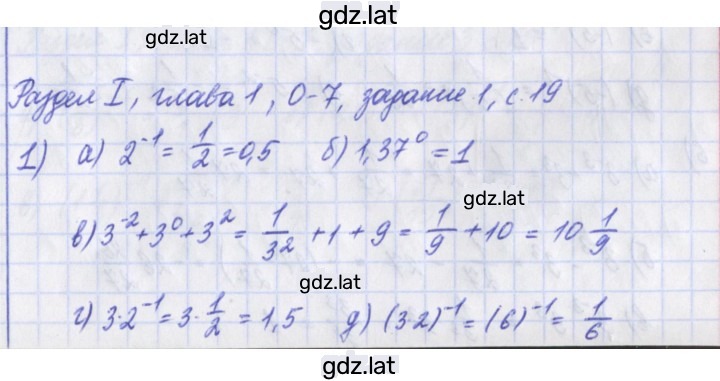 gdz.lat
gdz.lat
Раздел I, глава 1, О-7, задание 1, с. 19
1) а) 2⁻¹ = 1/2 = 0,5 б) 1,37⁰ = 1
gdz.lat
в) 3⁻² + 3⁰ + 3² = 1/3² + 1 + 9 = 1/9 + 10 = 10 1/9
gdz.lat
г) 3·2⁻¹ = 3·1/2 = 1,5 д) (3·2)⁻¹ = (6)⁻¹ = 1/6
gdz.lat